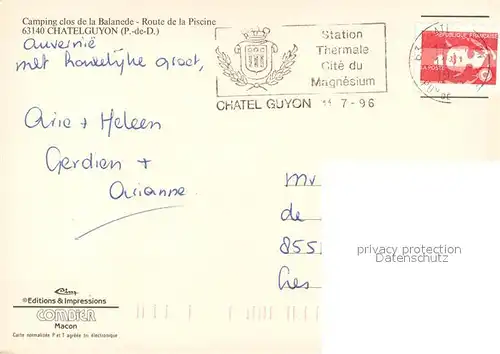 Camping clos de la Balanede - Route de la Piscine
63140 CHATELGUYON (P.-de-D.)
Auvernië
met hartelijke groet,
Station
Thermale
Cité du
Magnésium
CHATEL GUYON 11 7 - 96
REPUBLIQUE FRANÇAISE
LA POSTE
Arie + Heleen
Gerdien +
Arianne
Mr
de
855
privacy protection
Datenschutz
®Editions & Impressions
COMBIER
Macon
Carte normalisée P et T agréée tri électronique